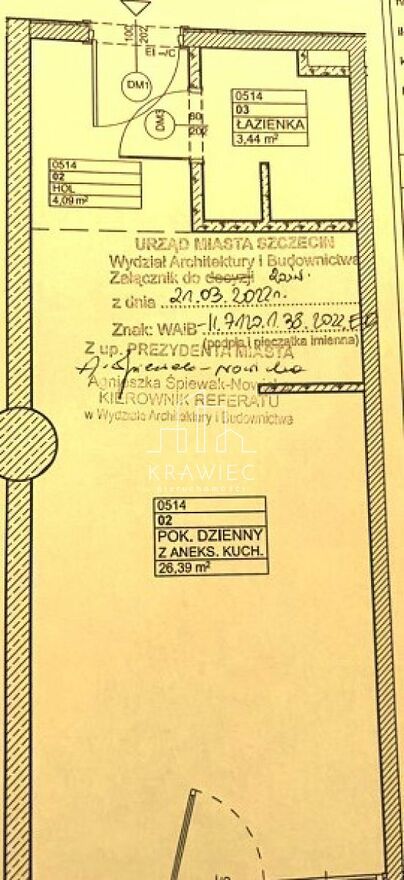 100
202
EI –/C
DM1
DM3
80
202
0514
03
ŁAZIENKA
3,44 m²
0514
02
HOL
4,09 m²
URZĄD MIASTA SZCZECIN
Wydział Architektury i Budownictwa
Załącznik do decyzji
z dnia 21.03.2022r.
Znak: WAiB-II.7120.1.38.2022
(podpis i pieczątka imienna)
Z up. PREZYDENTA MIASTA
Agnieszka Śpiewak-Nowicka
KIEROWNIK REFERATU
w Wydziale Architektury i Budownictwa
KRAWIEC
nieruchomości
0514
02
POK. DZIENNY
Z ANEKS. KUCH.
26,39 m²